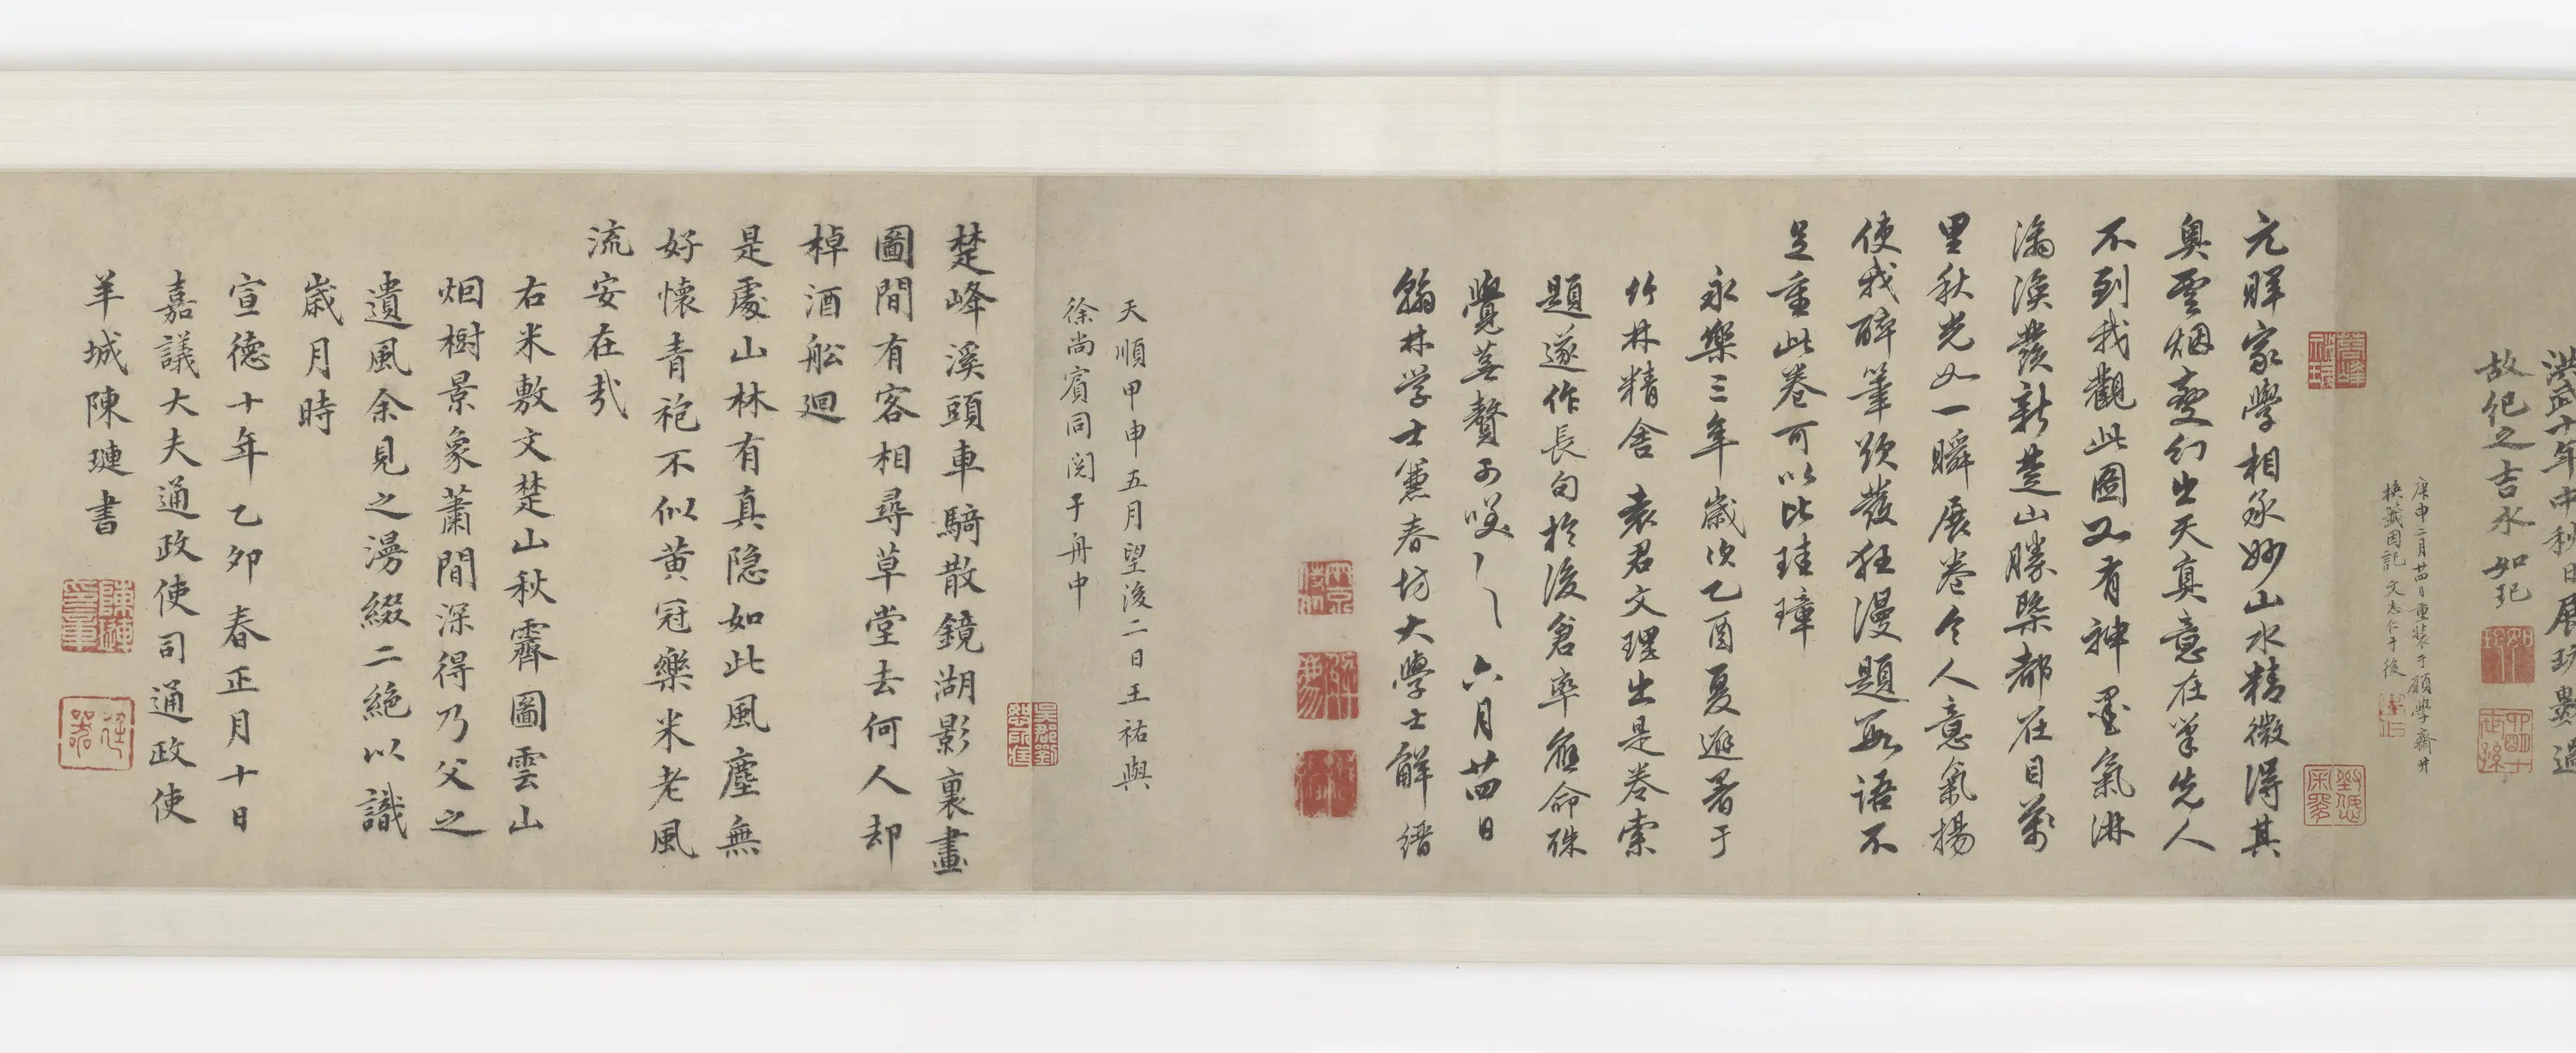 洪武十年中秋日展玩數過
故紀之吉水如玘
庚申二月廿四日重裝于願學齋并
換籤因記
元暉家學相承妙山水精微得其
奧雲烟變幻出天真意在筆先人
不到我觀此圖又有神墨氣淋
漓渙發新楚山勝槩都在目萬
里秋光如一瞬展卷令人意氣揚
使我醉筆欲發狂漫題數語不
足重此卷可以比珪璋
永樂三年歲次乙酉夏避暑于
竹林精舍袁君文理出是卷索
題遂作長句於後倉率應命殊
覺蕪贅可咲可咲六月廿四日
翰林学士兼春坊大學士解縉
天順甲申五月望後二日王祐與
徐尚賓同閱于舟中
楚峰溪頭車騎散鏡湖影裏畫
圖間有客相尋草堂去何人却
棹酒舩迴
是處山林有真隐如此風塵無
好懷青袍不似黄冠樂米老風
流安在㢤
右米敷文楚山秋霽圖雲山
烟樹景象蕭間深得乃父之
遺風余見之漫綴二絶以識
歲月時
宣德十年乙夘春正月十日
嘉議大夫通政使司通政使
羊城陳璉書